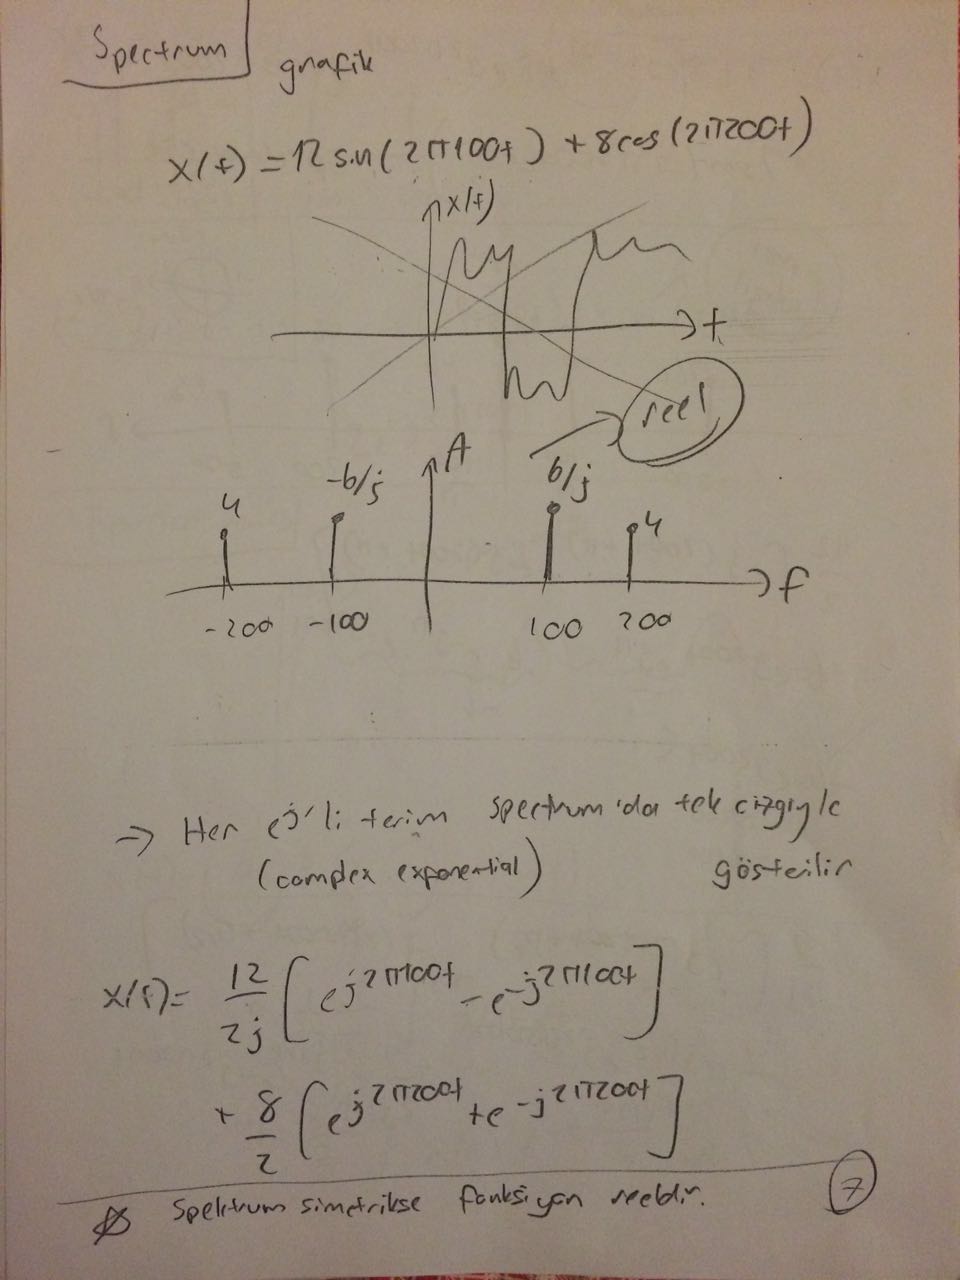 Spectrum
grafik
x(t) = 12 sin(2π100t) + 8cos(2π200t)
x(t)
t
reel
A
4 -6/j 6/j 4
f
-200 -100 100 200
→ Her e^j'li terim spectrum'da tek çizgiyle
(complex exponential) gösteilir
x(t)= 12/2j [e^j2π100t - e^-j2π100t]
+ 8/2 [e^j2π200t + e^-j2π200t]
Spektrum simetrikse fonksiyon reeldir.
7